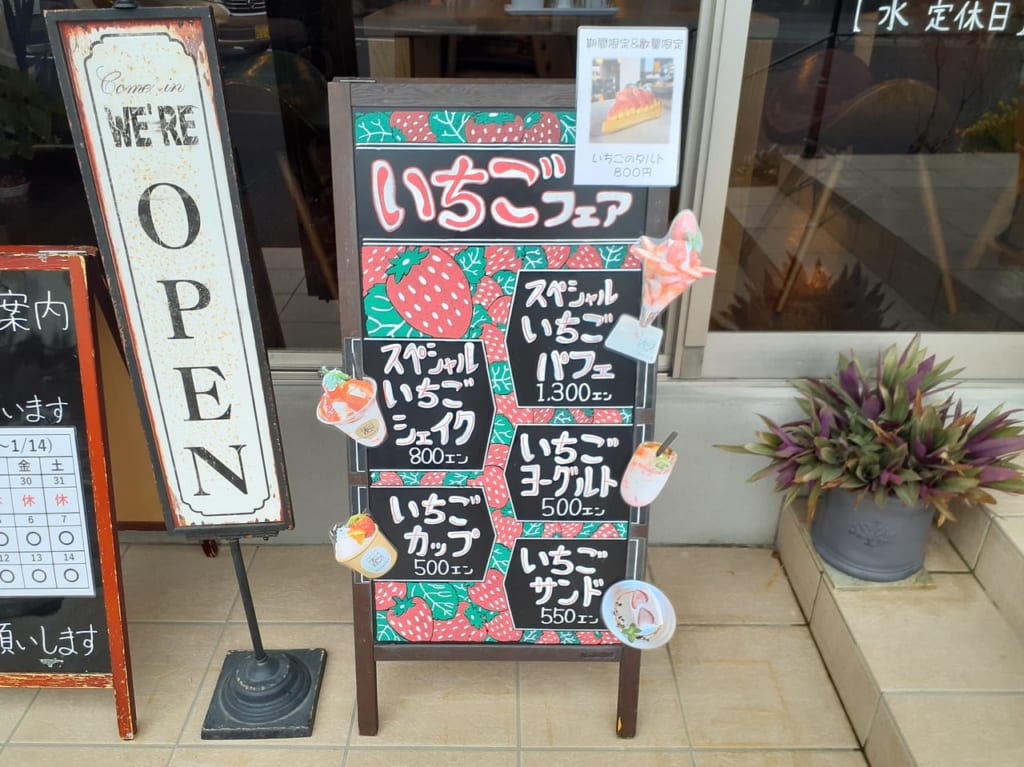 Come in
WE'RE
OPEN
案内
います
～1/14)
金 土
30 31
休 休
6 7
○ ○ ○
12 13 14
○ ○ ○
願いします
期間限定&数量限定
いちごのタルト
800円
いちごフェア
スペシャル
いちご
パフェ
1.300エン
スペシャル
いちご
シェイク
800エン
いちご
ヨーグルト
500エン
いちご
カップ
500エン
いちご
サンド
550エン
【 水 定休日】